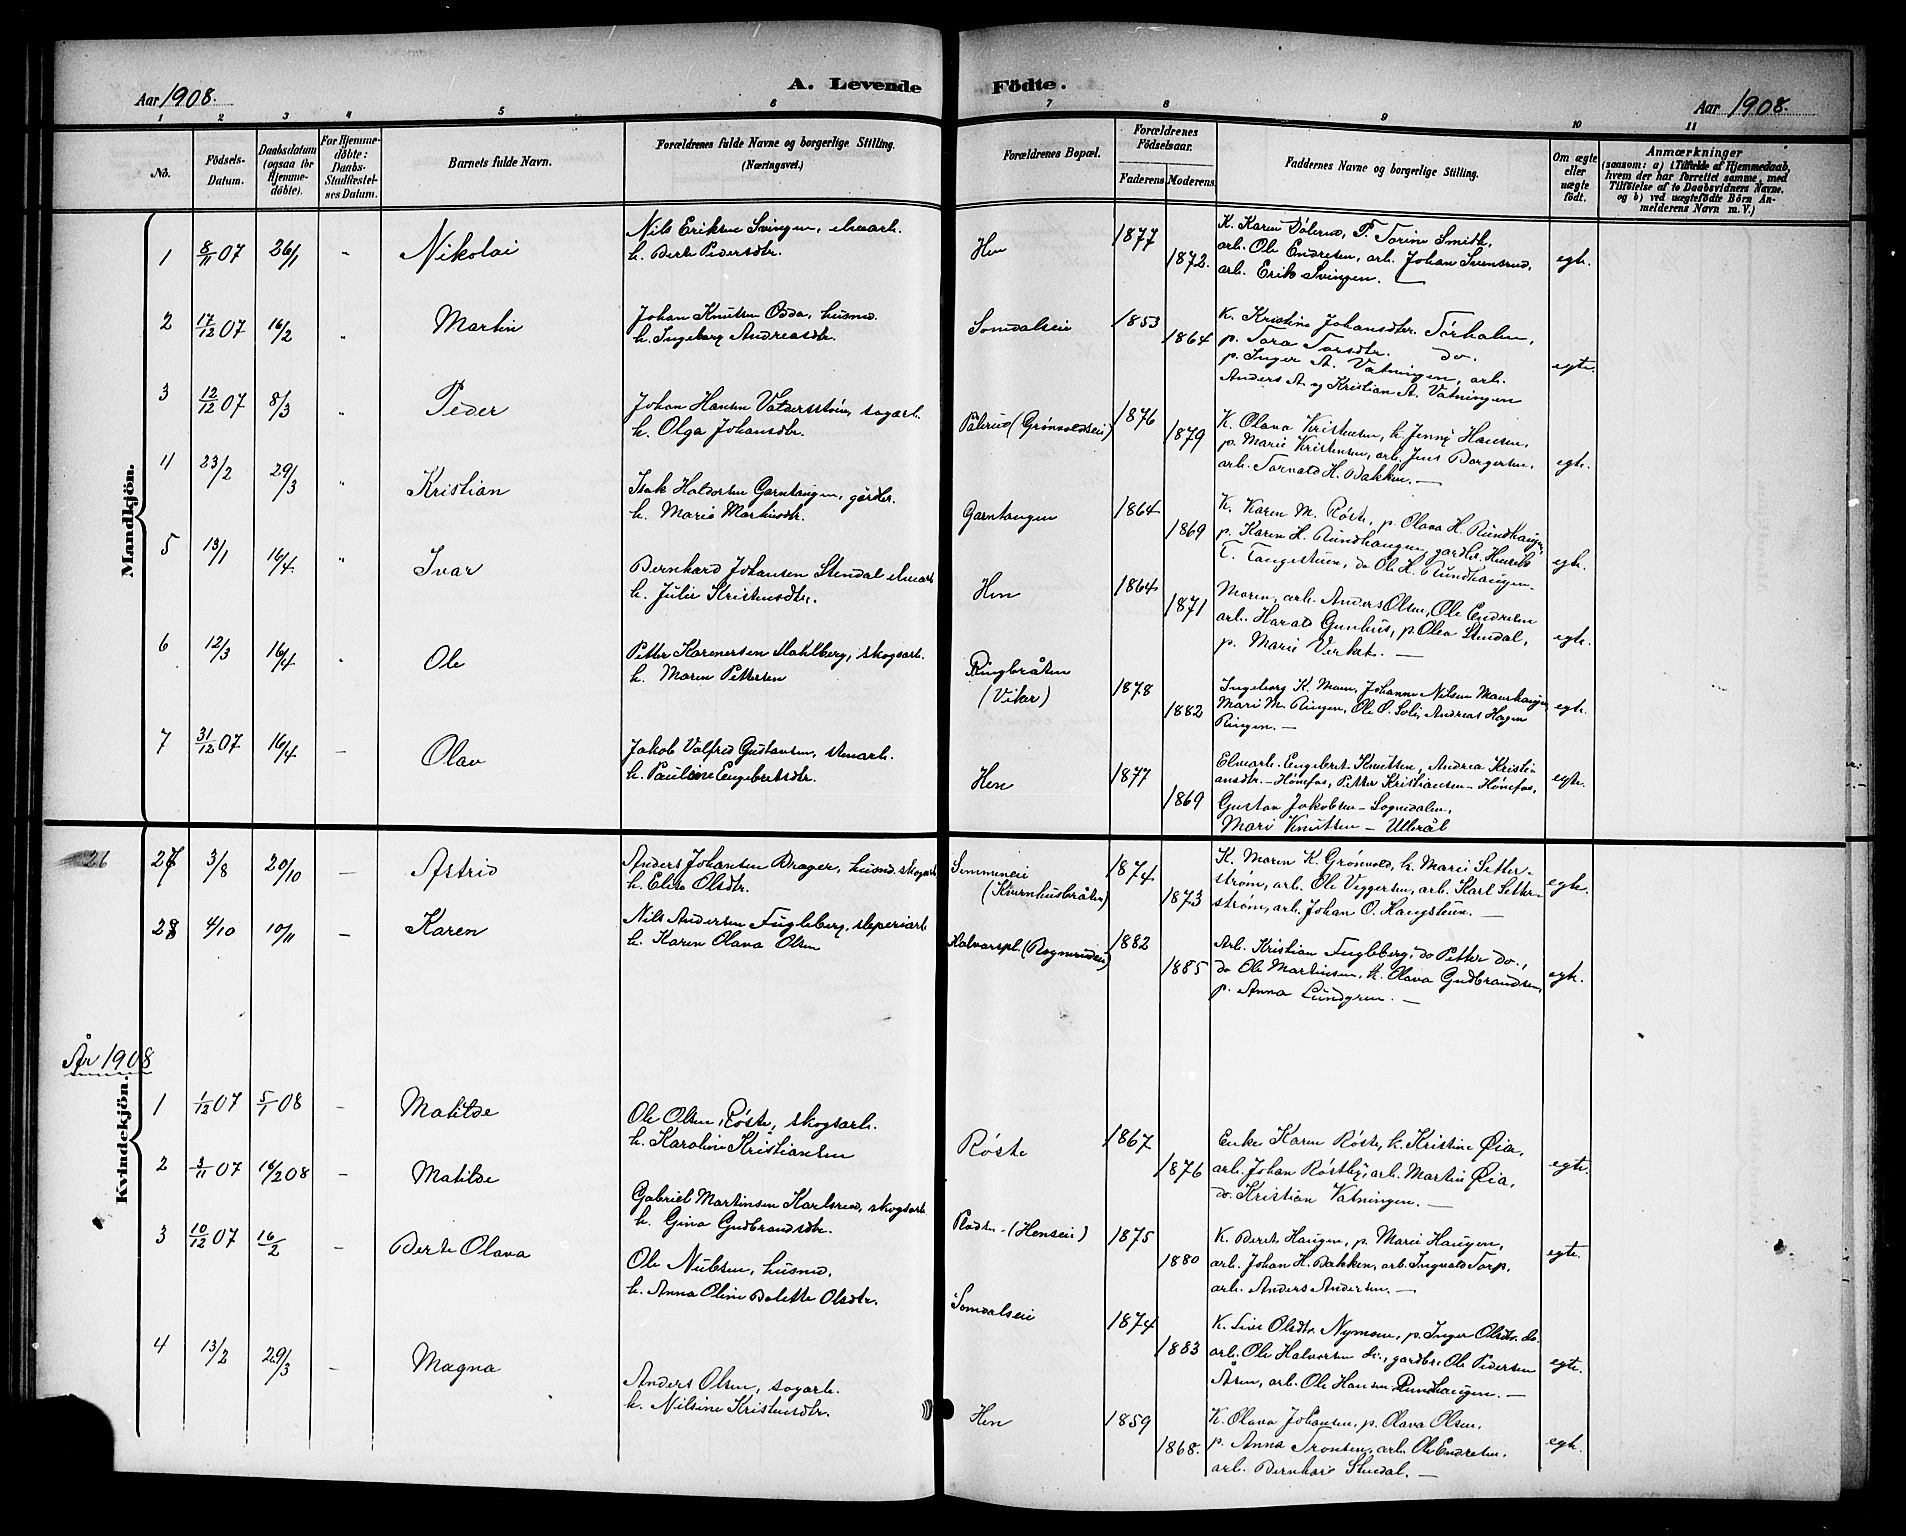 Aar 1908.
A. Levende Födte.
Aar 1908.
1 2 3 4 5 6 7 8 9 10 11
No.
Födsels-Datum.
Daabsdatum (ogsaa for Hjemme-döbte).
For Hjemme-döbte: Daabs-Stadfæstel-ses Datum.
Barnets fulde Navn.
Forældrenes fulde Navne og borgerlige Stilling. (Næringsvei.)
Forældrenes Bopæl.
Forældrenes Födselsaar.
Faderens Moderens.
Faddernes Navne og borgerlige Stilling.
Om ægte eller uægte födt.
Anmærkninger
(saasom: a) i Tilfælde af Hjemmedaab,
hvem der har forrettet samme, med
Tilföielse af to Daabsvidners Navne.
og b) ved uægtefödte Börn An-
melderens Navn m. V.)
Mandkjön.
1 8/11 07 26/1 " Nikolai
Nils Eriksen Svingen, elvearb.
h. Berte Pedersdtr.
Hen 1877 1872.
K. Karen Dölerud, P. Torine Smith,
arb. Ole Endresen, arb. Johan Svensrud,
arb. Erik Svingen.
egte.
2 17/12 07 16/2 " Martin
Johan Knutsen Odda, husmd.
h. Ingeborg Andreasdtr.
Somdalseie 1853 1864
K. Kristine Johansdtr. Törholm,
p. Tora Torsdtr. do.
p. Inger A. Vatningen, arb.
Anders A. og Kristian A. Vatningen
egte.
3 12/12 07 8/3 " Peder
Johan Hansen Valdersströn, sagarb.
h. Olga Johansdtr.
Pålerud (Grönvoldseie) 1876 1879
K. Olava Kristensen, h. Jenny Hansen,
p. Marie Kristensen, arb. Jens Borgersen,
arb. Torvald H. Bakken. —
egte.
4 23/2 29/3 " Kristian
Isak Haldorsen Garntangen, gårdbr.
h. Marie Martinsdtr.
Garntangen 1864 1869
K. Karen M. Röste, p. Olava H. Rundhaugen,
p. Karen H. Rundhaugen, gardbr. Henrik
T. Tangestuen, do Ole H. Rundhaugen.
egte.
5 13/1 16/4. " Ivar
Bernhard Johansen Stendal elvearb
h. Julie Kristensdtr.
Hen 1864 1871
Moren, arb. Anders Olsen, Ole Endresen
arb. Harald Gunhus, p. Olea Stendal,
p. Marie Verket. —
egte.
6 12/3 16/4 " Ole
Petter Karenersen Stahlberg, skogsarb.
h. Maren Pettersen
Ringbråten
(Viker)
1878 1882
Ingeborg K. Moen, Johanne Nilsen Moenhaugen
Mari M. Ringen, Ole O. Solie, Andreas Hagen
Ringen. —
egte.
7 31/12 07 16/4 — Olav
Jakob Valfrid Gustavsen, stenarb.
h. Pauline Engebretsdtr.
Hen 1877 1869
Elvearb. Engebret Knutsen, Andrea Kristi-
ansdtr. – Hönefos, Petter Kristiansen – Hönefos,
Gustav Jakobsen – Sognedalen,
Mari Knutsen – Ullerål
egte.
26 27 3/8 20/10 — Astrid
Anders Johansen Brager, husmd. skogsarb
h. Elise Olsdtr.
(Kvernhusbråten)
1874 1873
K. Maren K. Grönvold, h. Marie Setter-
ström, arb. Ole Viggersen, arb. Karl Setter-
ström, arb. Johan O. Haugstuen. —
egte.
28 4/10 10/11 — Karen
Nils Andersen Fugleberg, sleperiarb
h. Karen Olava Olsen
Halvorspl. (Rognerudeie) 1882 1885
Arb. Kristian Fugleberg, do Petter do.,
do Ole Martinsen, h. Olava Gudbrandsen,
p. Anna Lundgren. —
egte.
År 1908
Kvindekjön.
1 1/12 07 5/1 08 — Matilde
Ole Olsen Röste, skogsarb.
h. Karoline Kristiansen
Röste 1867 1876
Enke Karen Röste, h. Kristine Øia,
arb. Johan Röstby, arb. Martin Øia,
do. Kristian Vatningen. —
egte.
2 3/11 07 16/2 08 — Matilde
Gabriel Martinsen Karlsrud, skogsarb
h. Gina Gudbrandsdtr.
Pladsen (Henseie) 1875 1880
K. Beret Haugen, p. Marie Haugen,
arb. Johan H. Bakken, arb. Ingvald Torp,
arb. Anders Andersen. —
egte.
3 10/12 07 16/2 — Berte Olava
Ole Nielsen, husmd.
h. Anna Oline Bolette Olsdtr.
Somdalseie 1874 1883
K. Lise Olsdtr. Nymoen, p. Inger Olsdtr. do.
arb. Ole Halvorsen do., gardbr. Ole Pedersen
Åsen, arb. Ole Hansen Rundhaugen. —
egte.
4 13/2 29/3 — Magna
Anders Olsen, sagarb.
h. Nilsine Kristensdtr.
Hen 1859 1868.
K. Olava Johansen, p. Olava Olsen,
p. Anna Tronsen, arb. Ole Endresen,
arb. Bernhard Stendal. —
egte.